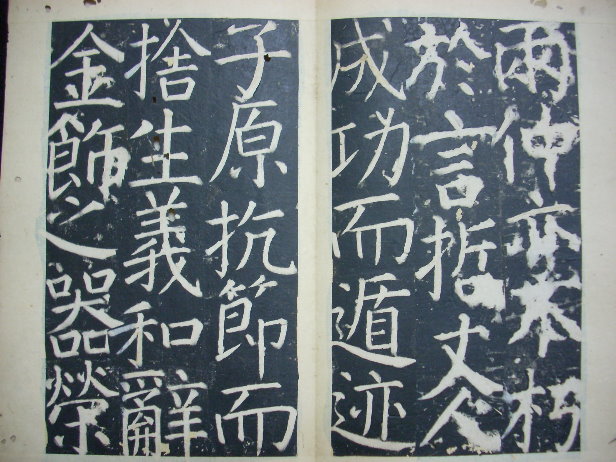 仲亦不朽
於言哲丈人
成功而遁迹
子原抗節而
捨生義和辭
金飾之器榮